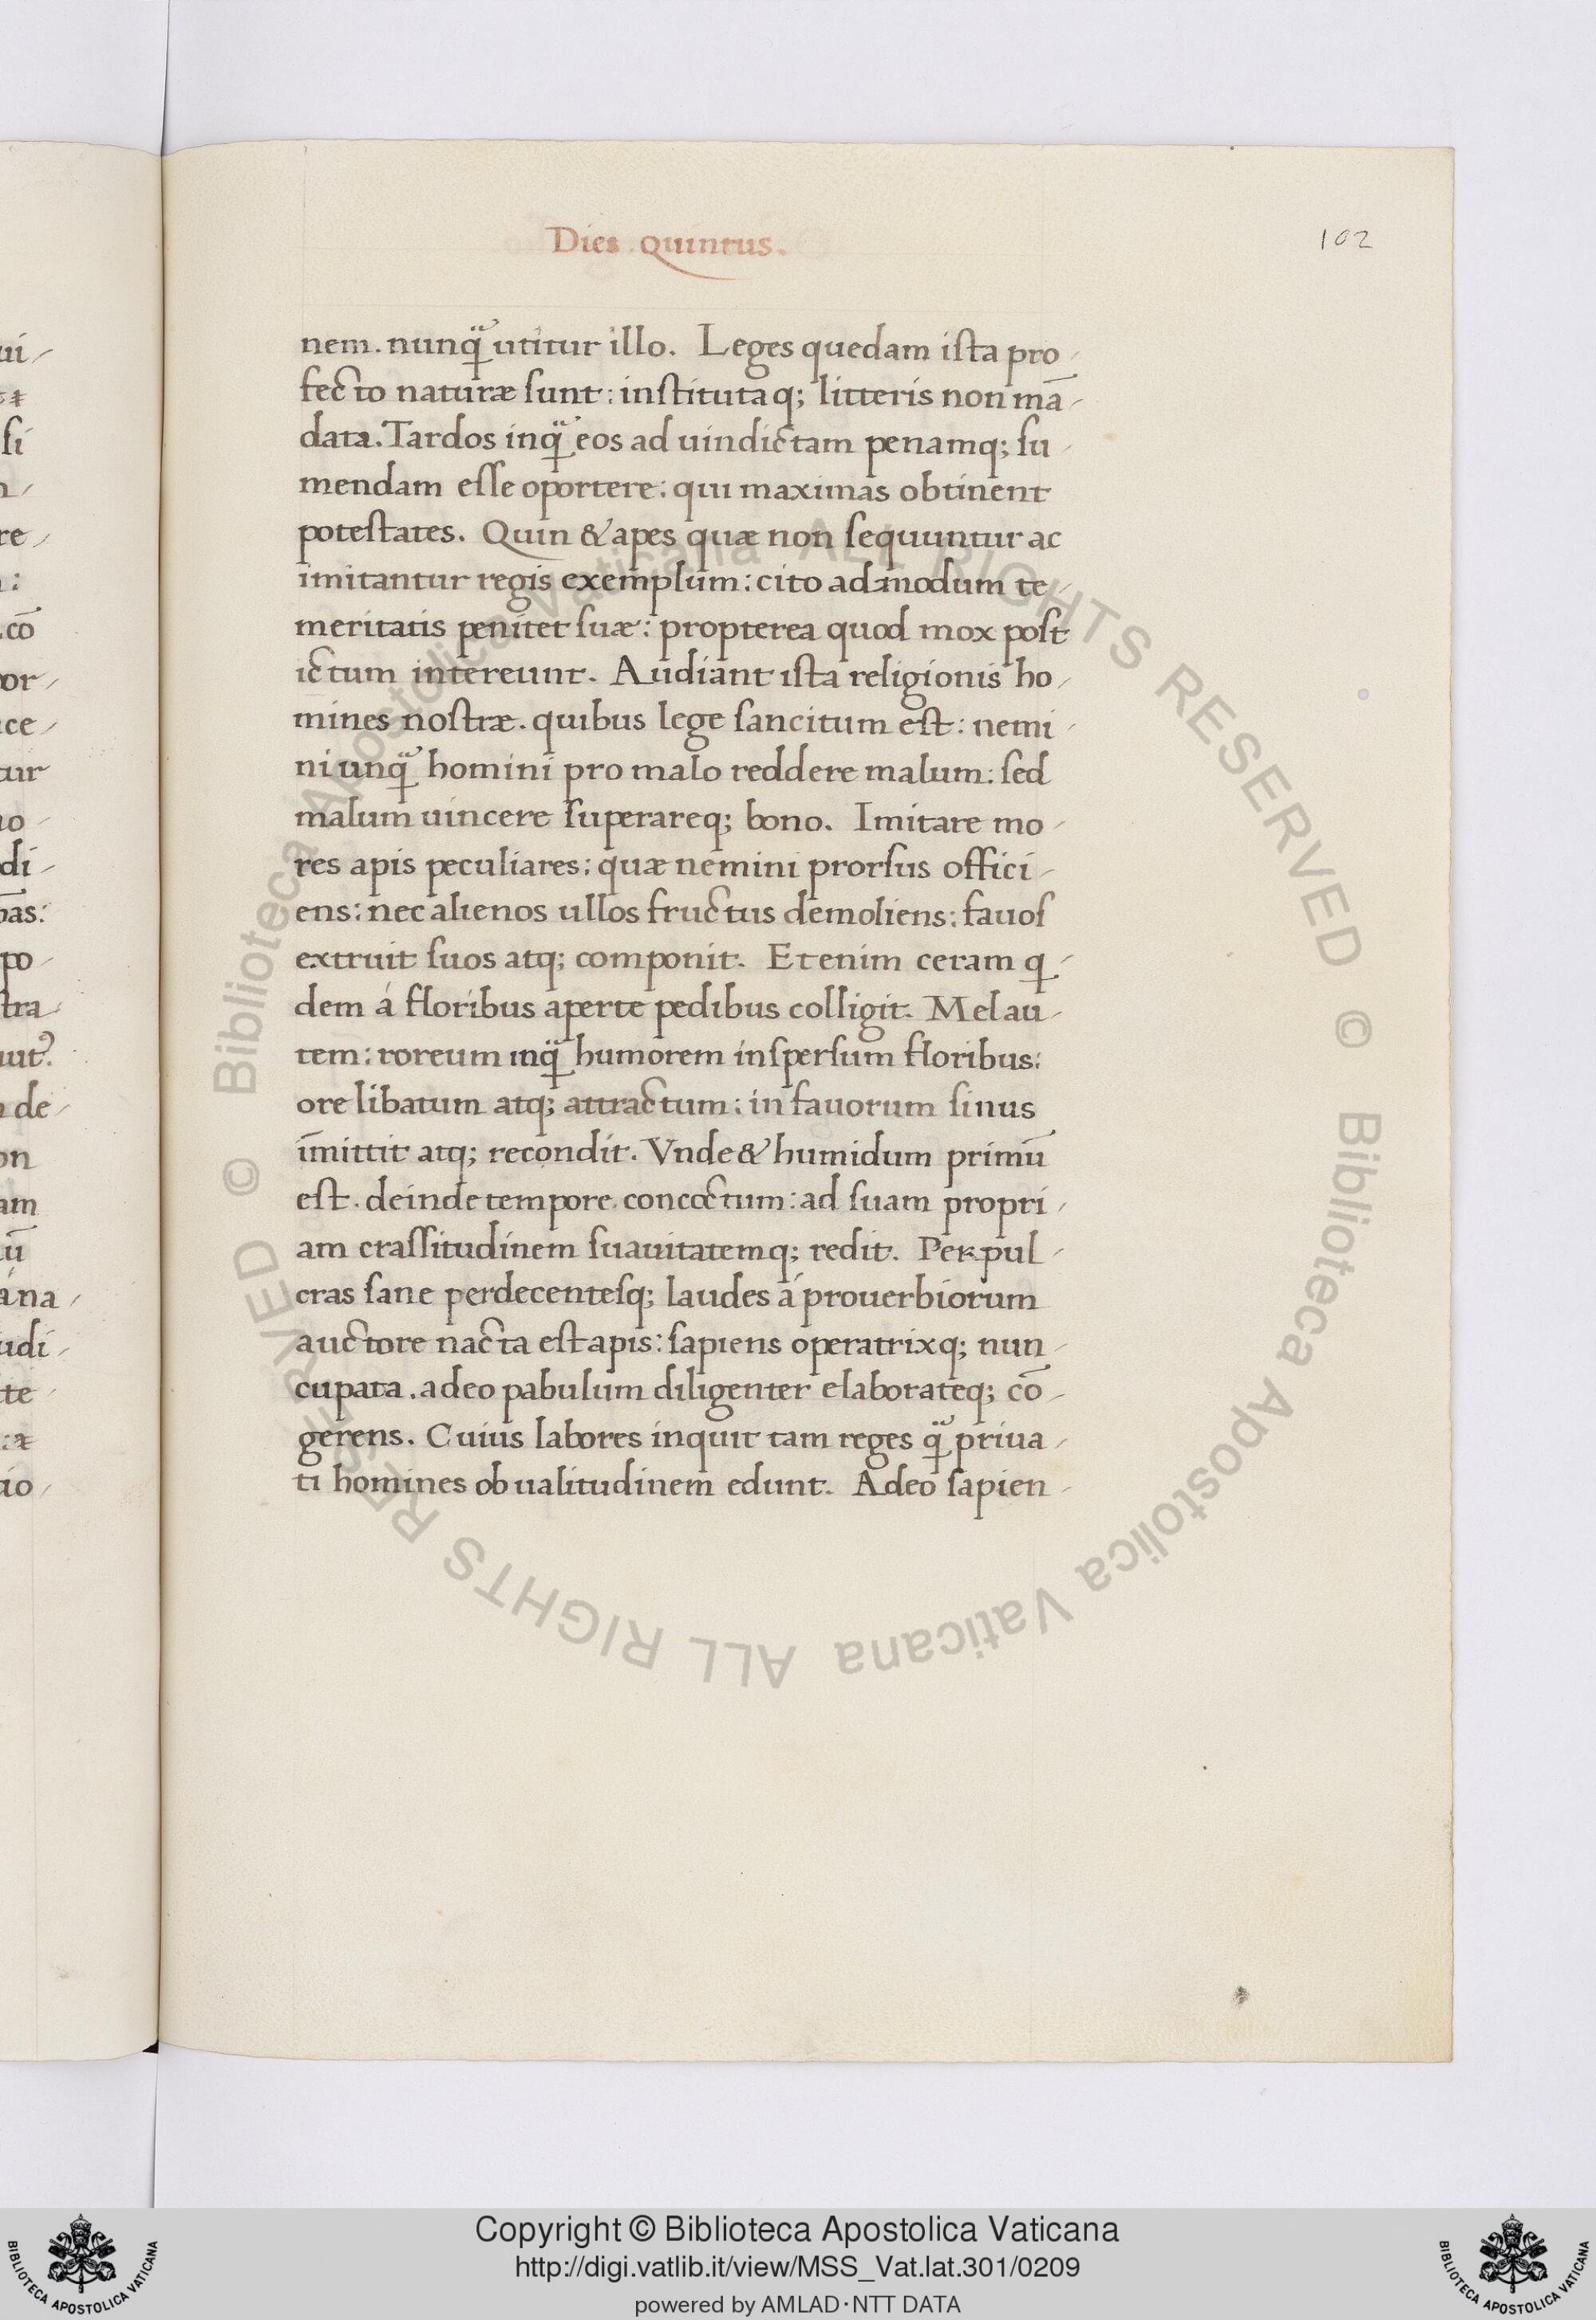 Dies quintus.
102
nem. nunq̃ utitur illo. Leges quedam ista pro-
fecto naturæ sunt: institutaq; litteris non mā-
data. Tardos inq̃ eos ad uindictam penamq; su-
mendam esse oportere: qui maximas obtinent
potestates. Quin & apes quæ non sequuntur ac
imitantur regis exemplum: cito admodum te-
meritatis penitet suæ: propterea quod mox post
ictum intereunt. Audiant ista religionis ho-
mines nostræ. quibus lege sancitum est: nemi-
ni unq̃ homini pro malo reddere malum: sed
malum uincere superareq; bono. Imitare mo-
res apis peculiares: quæ nemini prorsus offici-
ens: nec alienos ullos fructus demoliens: fauos
extruit suos atq; componit. Etenim ceram q-
dem á floribus aperte pedibus colligit. Mel au-
tem: roreum inq̃ humorem inspersum floribus:
ore libatum atq; attractum: in fauorum sinus
īmittit atq; recondit. Vnde & humidum primū
est. deinde tempore concoctum: ad suam propri-
am crassitudinem suauitatemq; redit. Perpul-
cras sane perdecentesq; laudes á prouerbiorum
auctore nacta est apis: sapiens operatrixq; nun-
cupata. adeo pabulum diligenter elaborateq; cō-
gerens. Cuius labores inquit tam reges q̃ priua-
ti homines ob ualitudinem edunt. Adeo sapien-
ui-
si
re-
cō
por-
ce-
tur
no-
di-
bas:
po-
stra-
uit?
de-
on
am
ū
ána-
udi-
te
tio-
© Biblioteca Apostolica Vaticana ALL RIGHTS RESERVED © Biblioteca Apostolica Vaticana ALL RIGHTS RESERVED
Copyright © Biblioteca Apostolica Vaticana
http://digi.vatlib.it/view/MSS_Vat.lat.301/0209
powered by AMLAD·NTT DATA
BIBLIOTECA APOSTOLICA VATICANA
BIBLIOTECA APOSTOLICA VATICANA